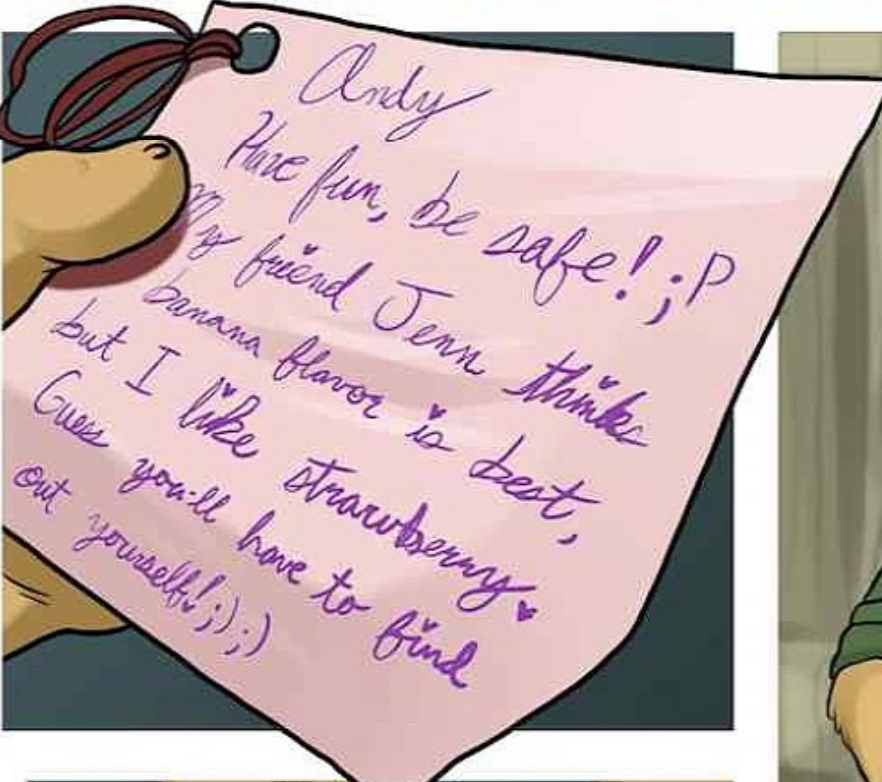 Andy
Have fun, be safe! ;P
My friend Jenn thinks
banana flavor is best,
but I like strawberry.
Guess you'll have to find
out yourself! ;) ;)